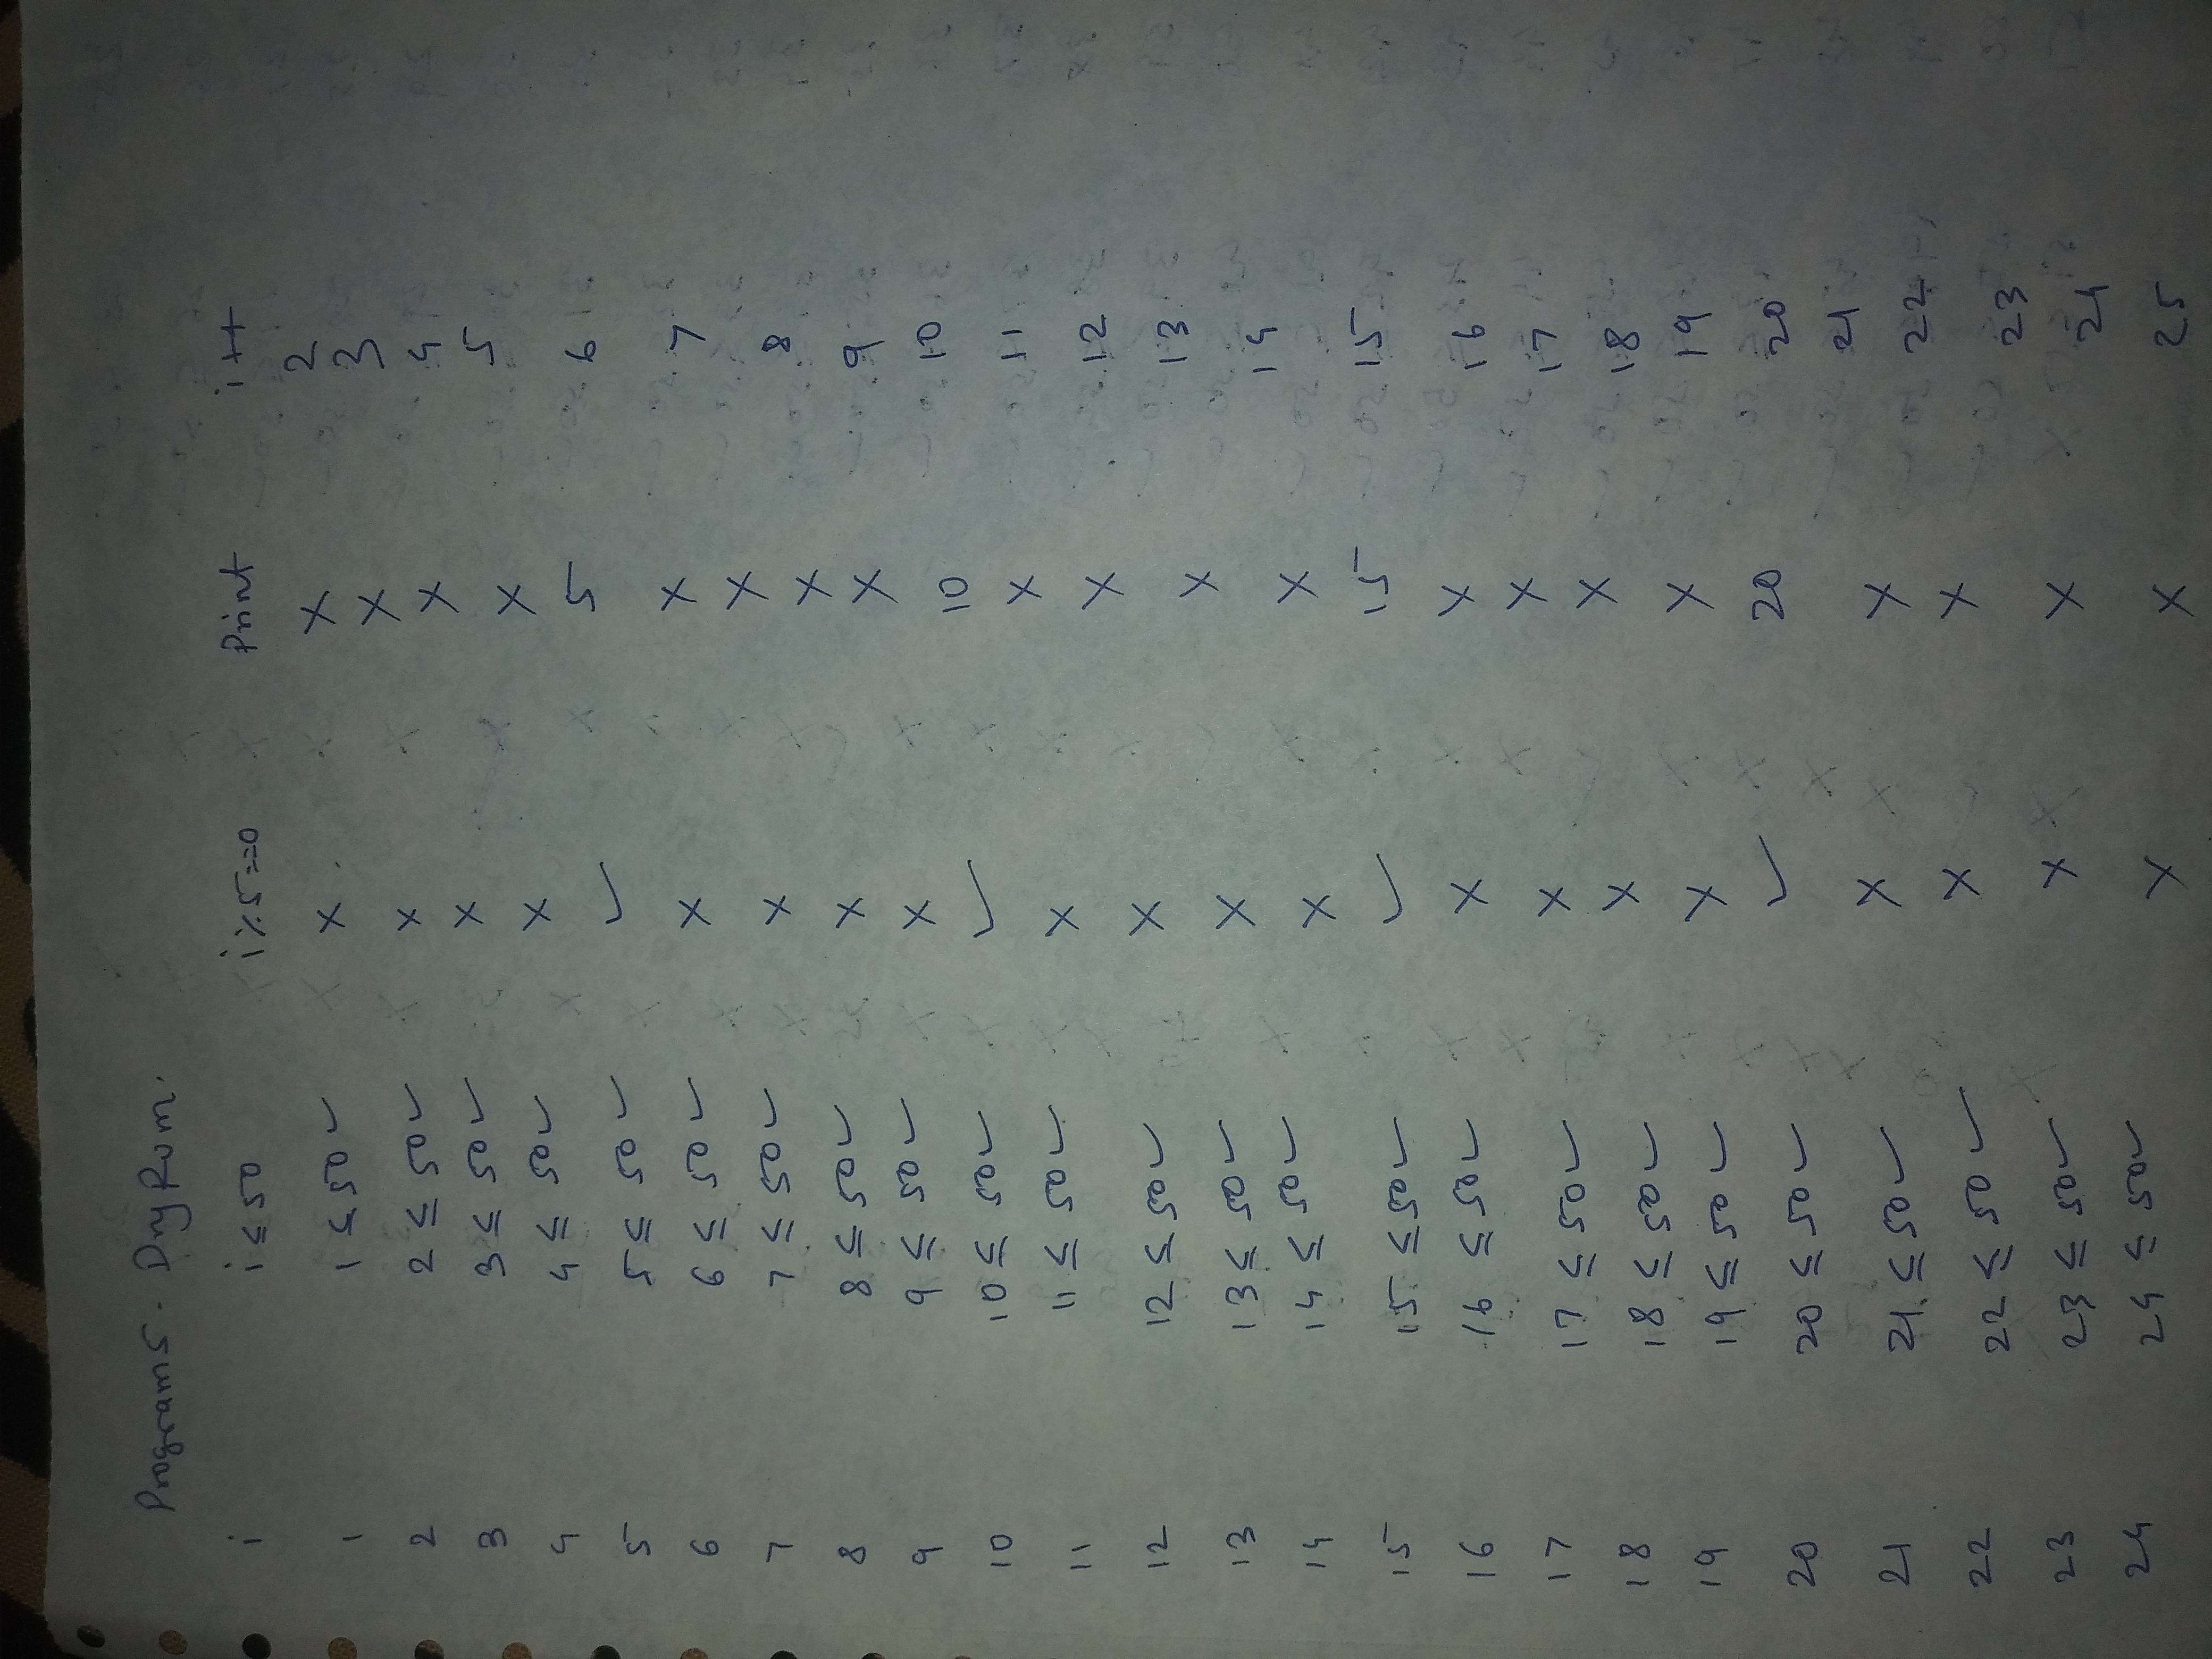 Program 5. Dry Run.
i i ≤ 50 i%5==0 Print i++
1 1 ≤ 50 ✓ × × 2
2 2 ≤ 50 ✓ × × 3
3 3 ≤ 50 ✓ × × 4
4 4 ≤ 50 ✓ × × 5
5 5 ≤ 50 ✓ ✓ 5 6
6 6 ≤ 50 ✓ × × 7
7 7 ≤ 50 ✓ × × 8
8 8 ≤ 50 ✓ × × 9
9 9 ≤ 50 ✓ × × 10
10 10 ≤ 50 ✓ ✓ 10 11
11 11 ≤ 50 ✓ × × 12
12 12 ≤ 50 ✓ × × 13
13 13 ≤ 50 ✓ × × 14
14 14 ≤ 50 ✓ × × 15
15 15 ≤ 50 ✓ ✓ 15 16
16 16 ≤ 50 ✓ × × 17
17 17 ≤ 50 ✓ × × 18
18 18 ≤ 50 ✓ × × 19
19 19 ≤ 50 ✓ × × 20
20 20 ≤ 50 ✓ ✓ 20 21
21 21 ≤ 50 ✓ × × 22
22 22 ≤ 50 ✓ × × 23
23 23 ≤ 50 ✓ × × 24
24 24 ≤ 50 ✓ × × 25